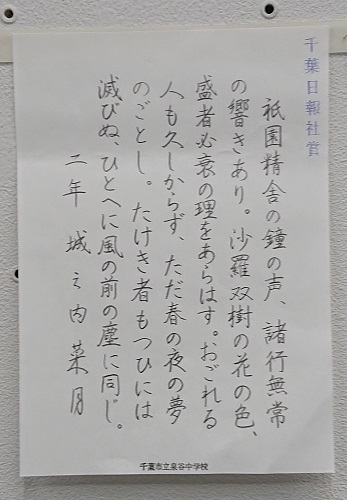 千葉日報社賞
祇園精舎の鐘の声、諸行無常
の響きあり。沙羅双樹の花の色、
盛者必衰の理をあらはす。おごれる
人も久しからず、ただ春の夜の夢
のごとし。たけき者もつひには
滅びぬ、ひとへに風の前の塵に同じ。
二年 城之内菜月
千葉市立泉谷中学校